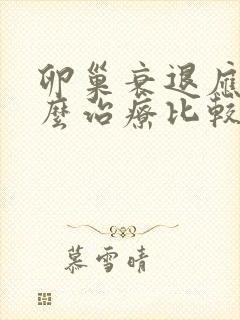 卵巢衰退應
麼治療比較
慕雪晴